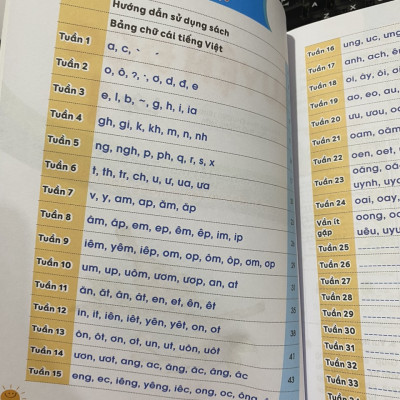 Hướng dẫn sử dụng sách
Bảng chữ cái tiếng Việt
Tuần 1 a, c,
Tuần 2 o, ô, ?, ., ơ, d, đ, e
Tuần 3 ê, l, b, ~, g, h, i, ia
Tuần 4 gh, gi, k, kh, m, n, nh
Tuần 5 ng, ngh, p, ph, q, r, s, x
Tuần 6 t, th, tr, ch, u, ư, ua, ưa
Tuần 7 v, y, am, ap, ăm, ăp
Tuần 8 âm, âp, em, ep, êm, êp, im, ip
Tuần 9 iêm, yêm, iêp, om, op, ôm, ôp, ơm, ơp
Tuần 10 um, up, uôm, ươm, ươp, an, at
Tuần 11 ăn, ăt, ân, ât, en, et, ên, êt
Tuần 12 in, it, iên, iêt, yên, yêt, on, ot
Tuần 13 ôn, ôt, ơn, ơt, un, ut, uôn, uôt
Tuần 14 ươn, ươt, ang, ac, ăng, ăc, âng, âc
41
Tuần 15 eng, ec, iêng, yêng, iêc, ong, oc, ông,
43
Tuần 16 ung, uc, ưng
Tuần 17 anh, ach,
Tuần 18 oi, ây, ôi,
Tuần 19 ao, eo, au,
Tuần 20 ưu, ươu,
Tuần 21 oam, oăm
Tuần 22 oen, oet,
Tuần 23 oăng,
uynh,
Tuần 24 oai, oay,
Vần ít gặp oong,
uêu, uyu
Tuần 25
Tuần 26
Tuần 27
Tuần 28
Tuần 29
Tuần 30
Tuần 31
Tuần 32
Tuần 33